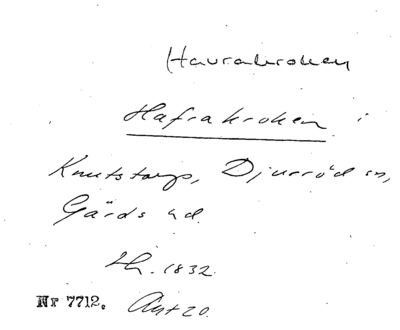 Havrakroken
Hafrakroken i
Knutstorp, Djurröd sn,
Gärds hd.
Lh. 1832.
Nr 7712. Akt 20.